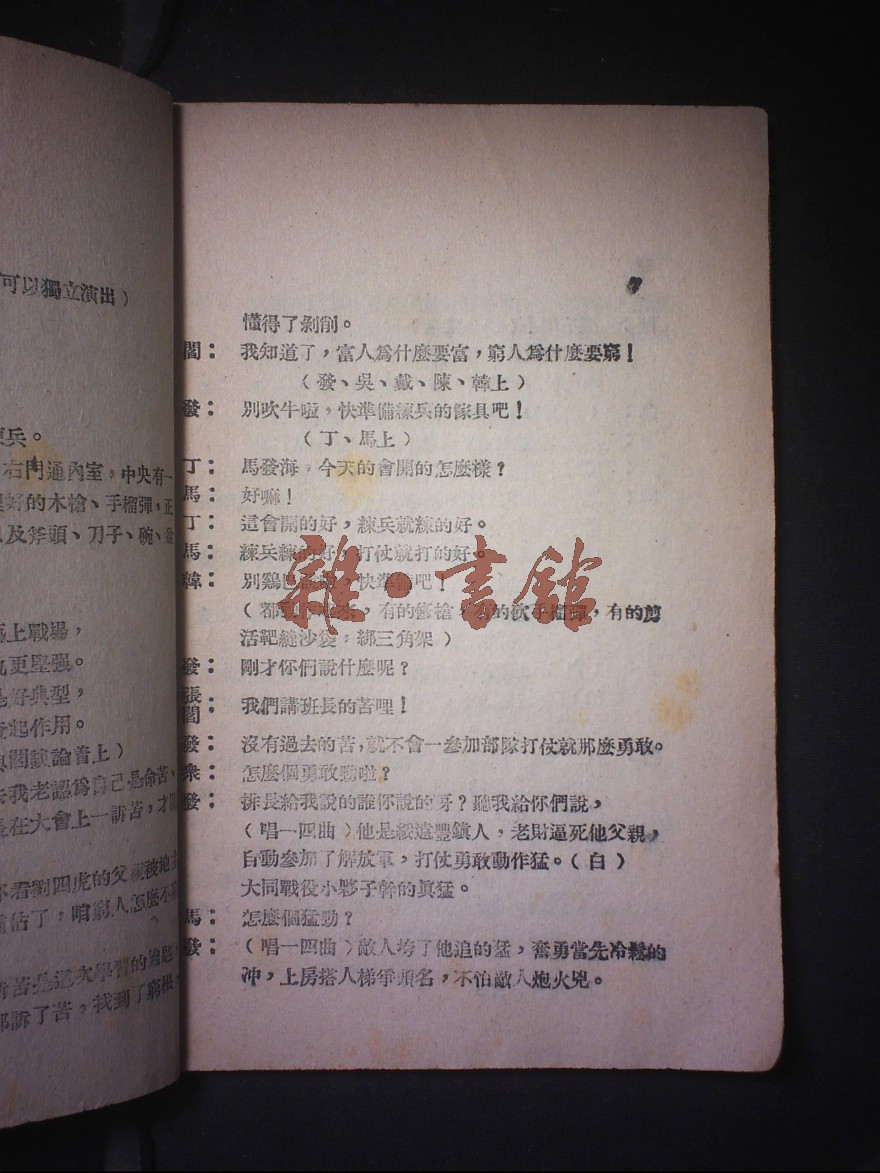 可以獨立演出）
兵。
右門通內室，中央有一
好的木槍、手榴彈，正
及斧頭、刀子、碗、
上戰場，
更堅强。
好典型，
起作用。
閻談論着上）
我老認爲自己是命苦、
在大會上一訴苦，才
看劉四虎的父親被地主
佔了，咱窮人怎麼不
訴苦是這次學習的鑰匙，
都訴了苦，找到了窮根，
懂得了剝削。
閻：我知道了，富人爲什麼要富，窮人爲什麼要窮！
（發、吳、戴、陳、韓上）
發：別吹牛啦，快準備練兵的傢具吧！
（丁、馬上）
丁：馬發海，今天的會開的怎麼樣？
馬：好嘛！
丁：這會開的好，練兵就練的好。
馬：練兵練的好，打仗就打的好。
韓：別鷄巴，快準備吧！
（都來，有的修槍，有的手榴彈，有的剪
活靶縫沙袋，綁三角架）
發：剛才你們說什麼呢？
張閻：我們講班長的苦哩！
發：沒有過去的苦，就不會一參加部隊打仗就那麼勇敢。
衆：怎麼個勇敢勁啦？
發：排長給我說的誰你說的呀？聽我給你們說，
（唱一四曲）他是綏遠豐鎮人，老財逼死他父親，
自動參加了解放軍，打仗勇敢動作猛。（白）
大同戰役小夥子幹的眞猛。
馬：怎麼個猛勁？
發：（唱一四曲）敵人垮了他追的猛，奮勇當先冷鬆的
沖，上房搭人梯爭頭名，不怕敵人炮火兇。
雜·書館